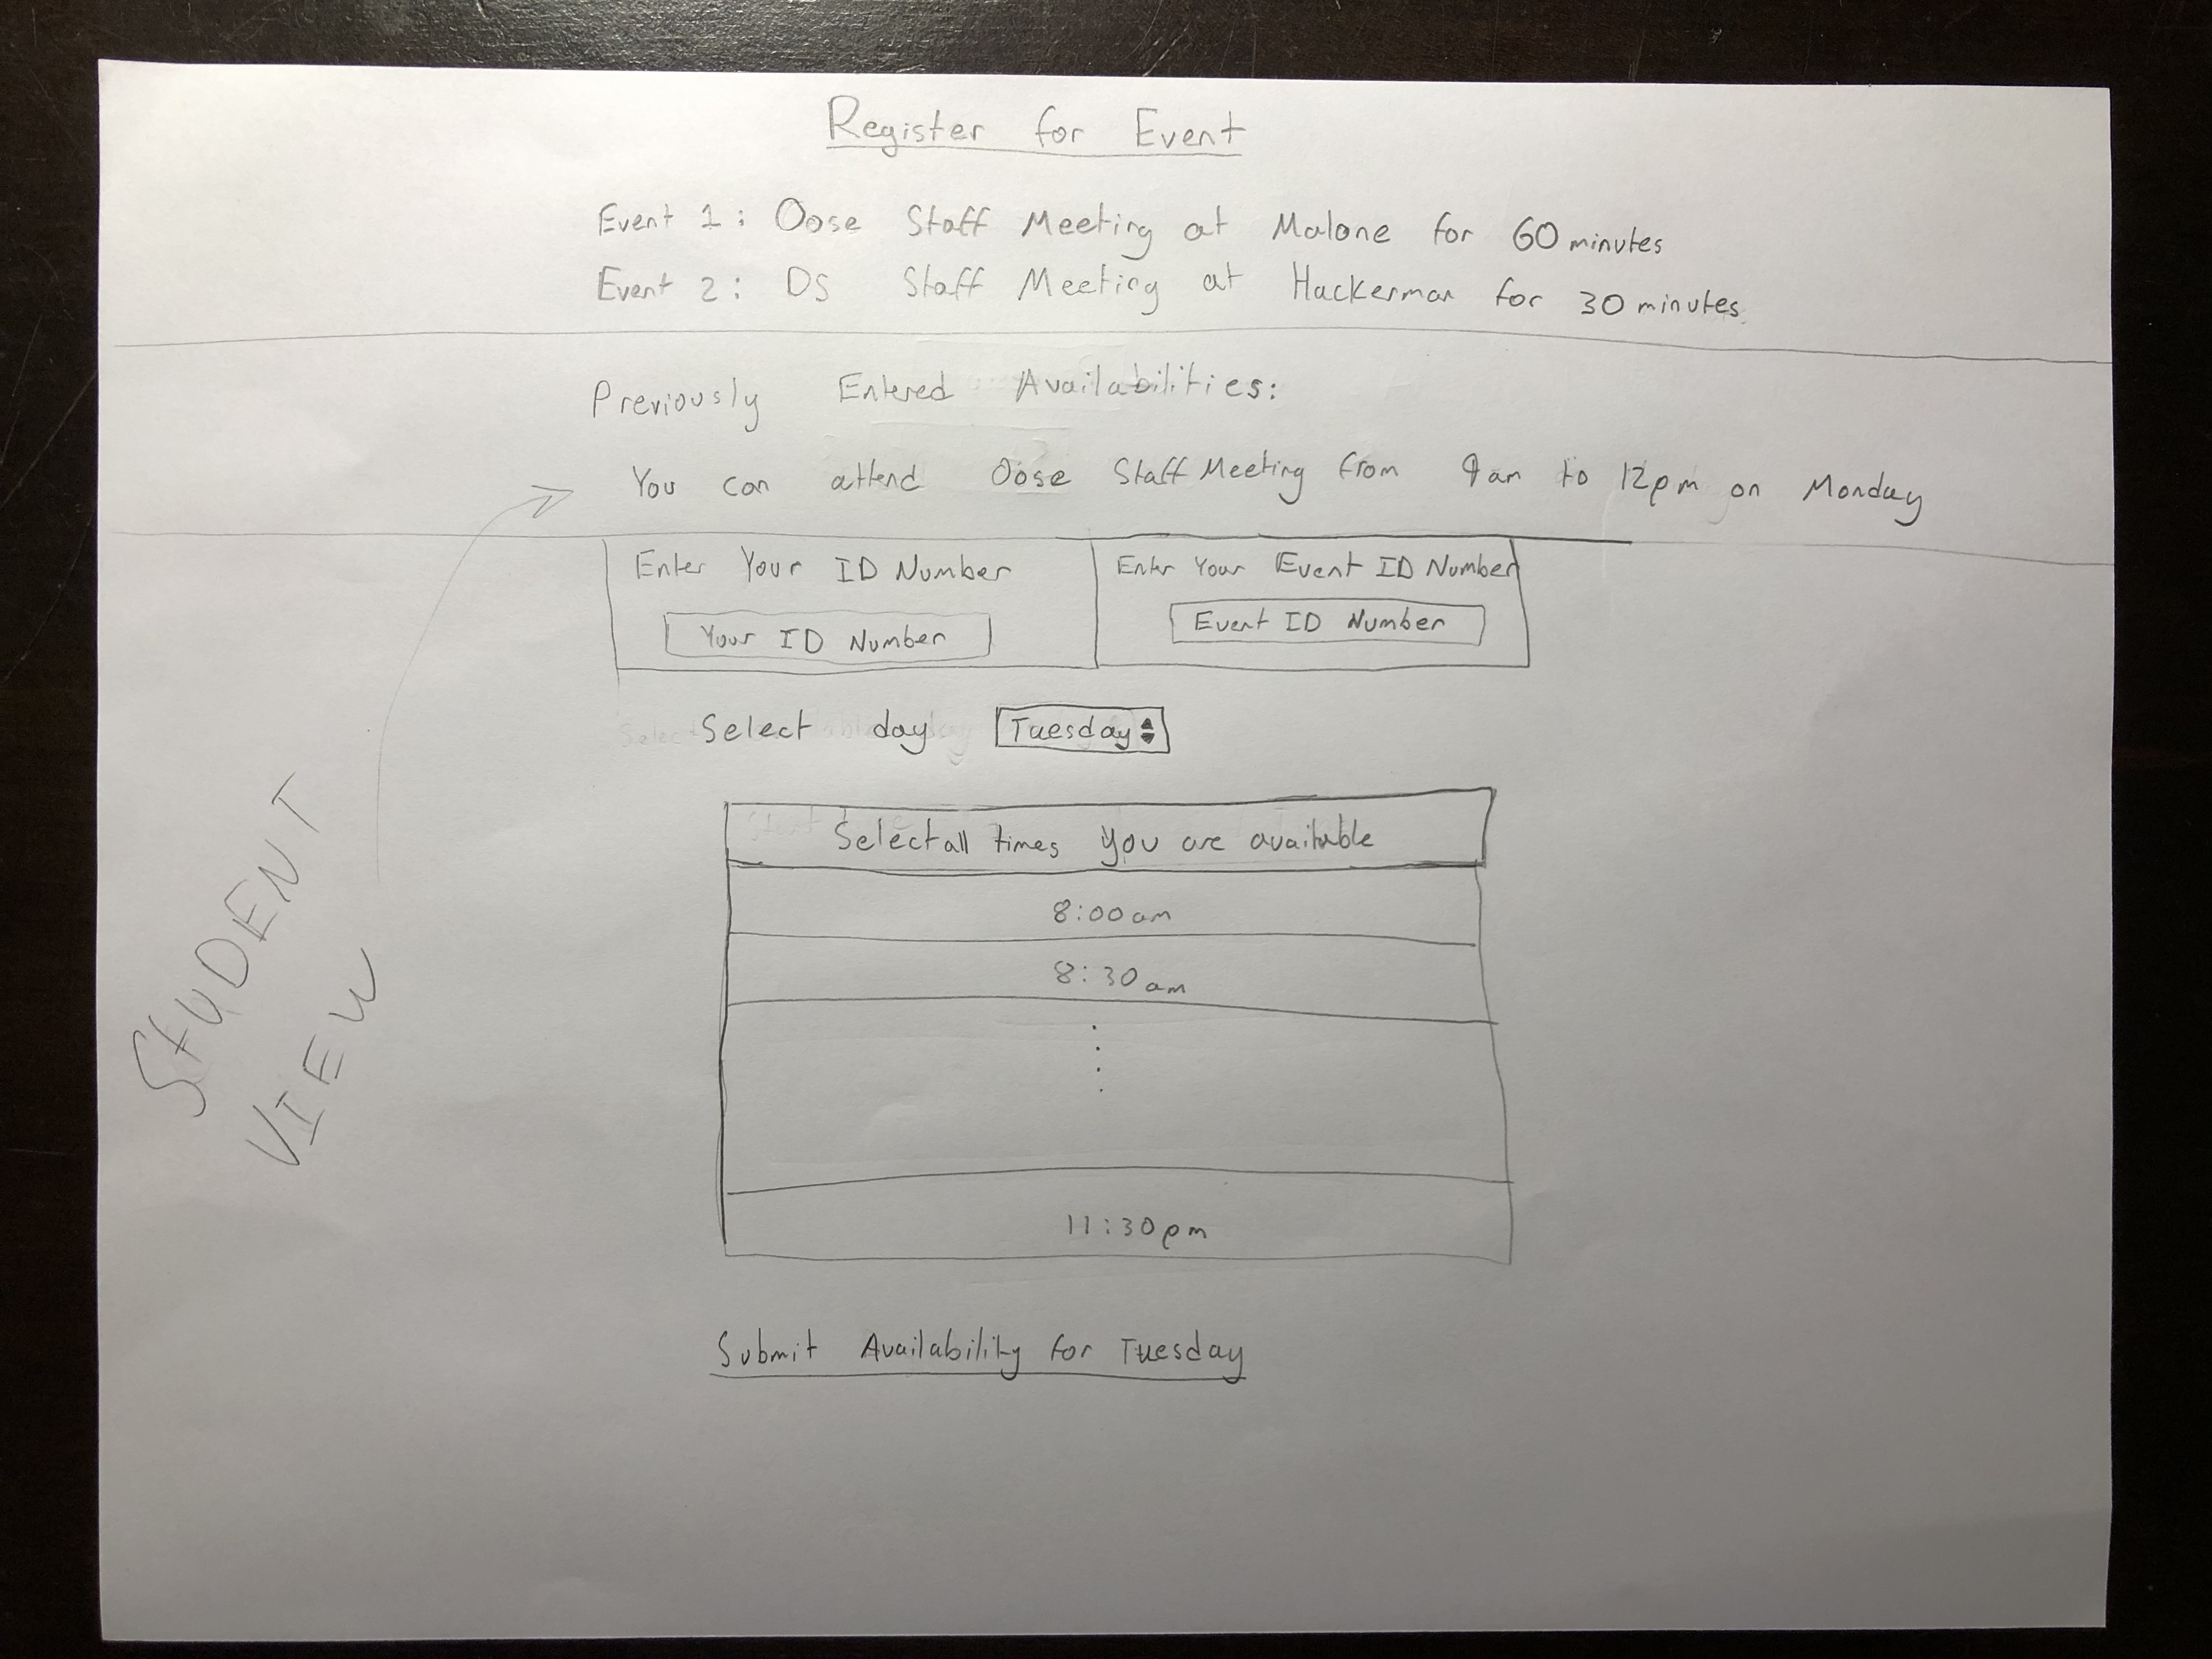 Register for Event
Event 1: Oose Staff Meeting at Malone for 60 minutes
Event 2: DS Staff Meeting at Hackerman for 30 minutes
Previously Entered Availabilities:
You can attend Oose Staff Meeting from 9am to 12pm on Monday
Enter Your ID Number
Your ID Number
Enter Your Event ID Number
Event ID Number
Select day Tuesday
Select all times you are available
8:00am
8:30am
11:30pm
Submit Availability for Tuesday
STUDENT
VIEW